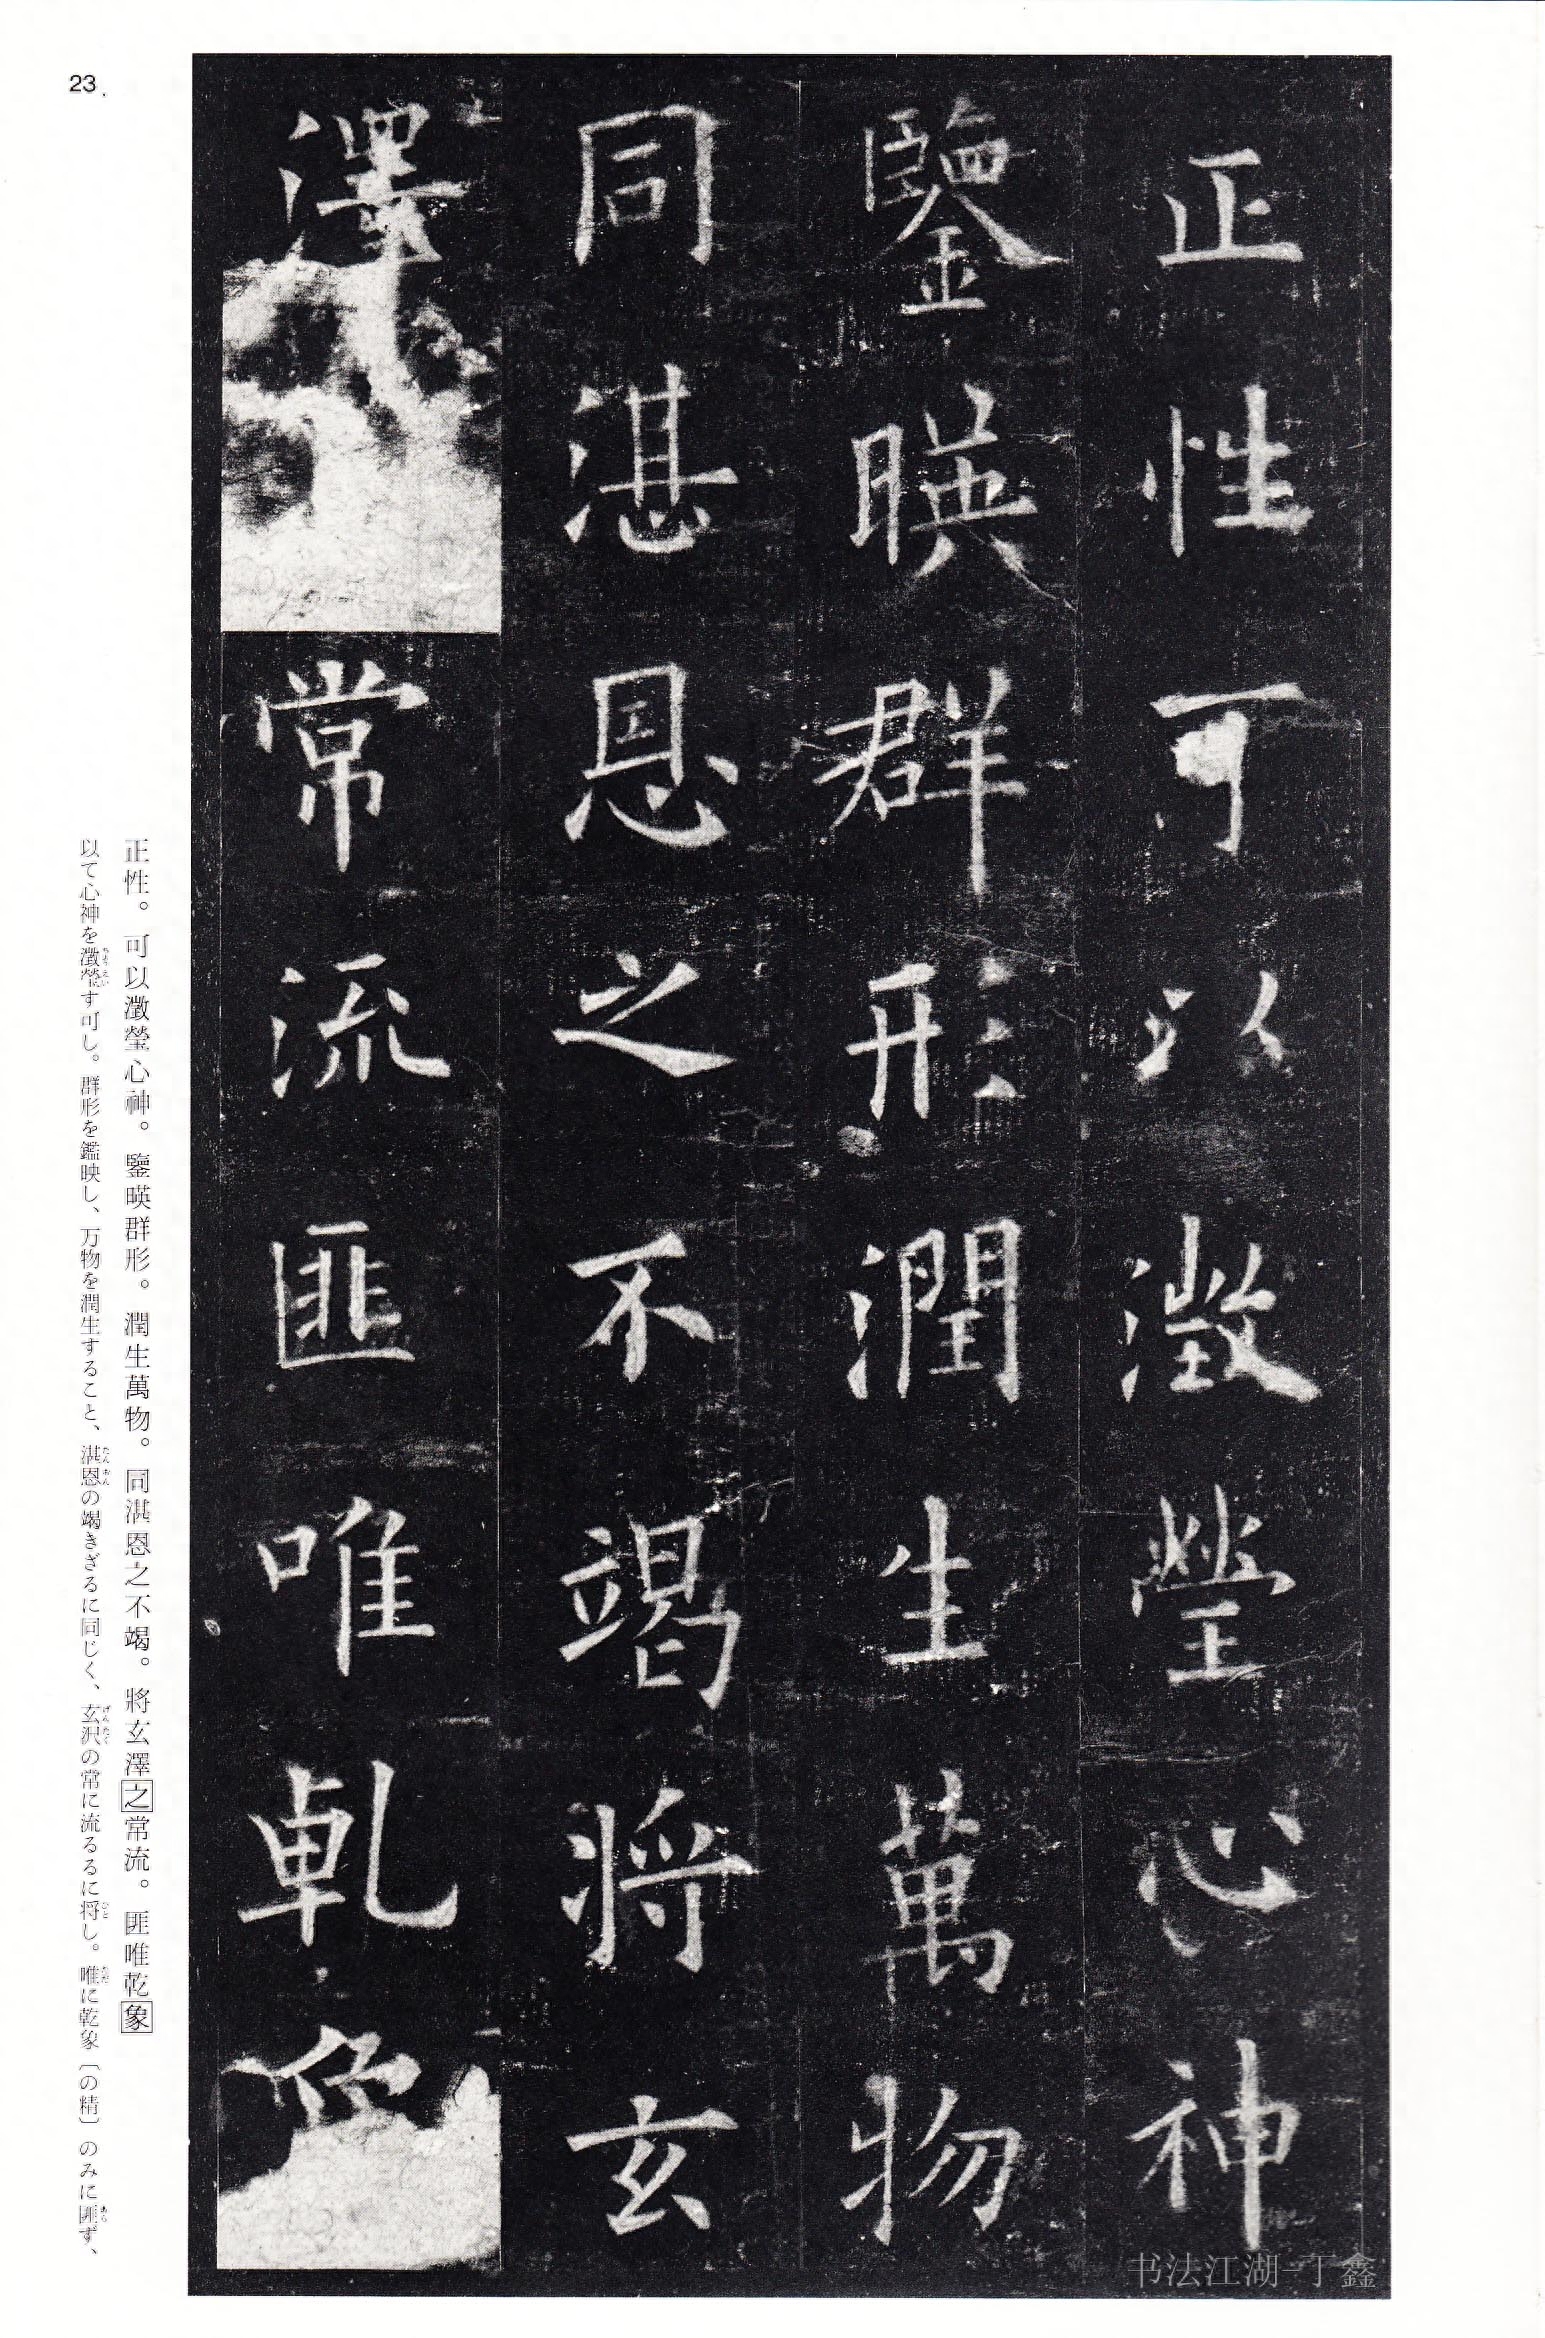 正性可以澂瑩心神
鑒暎群形潤生萬物
同湛恩之不竭將玄
澤常流匪唯乹象
正性。可以澂瑩心神。鑒暎群形。潤生萬物。同湛恩之不竭。將玄澤之常流。匪唯乾象
以て心神を澂瑩す可し。群形を鑑映し、万物を潤生すること、湛恩の竭きざるに同じく、玄沢の常に流るるに将し。唯に乾象〔の精〕のみに匪ず、
23
书法江湖-丁鑫